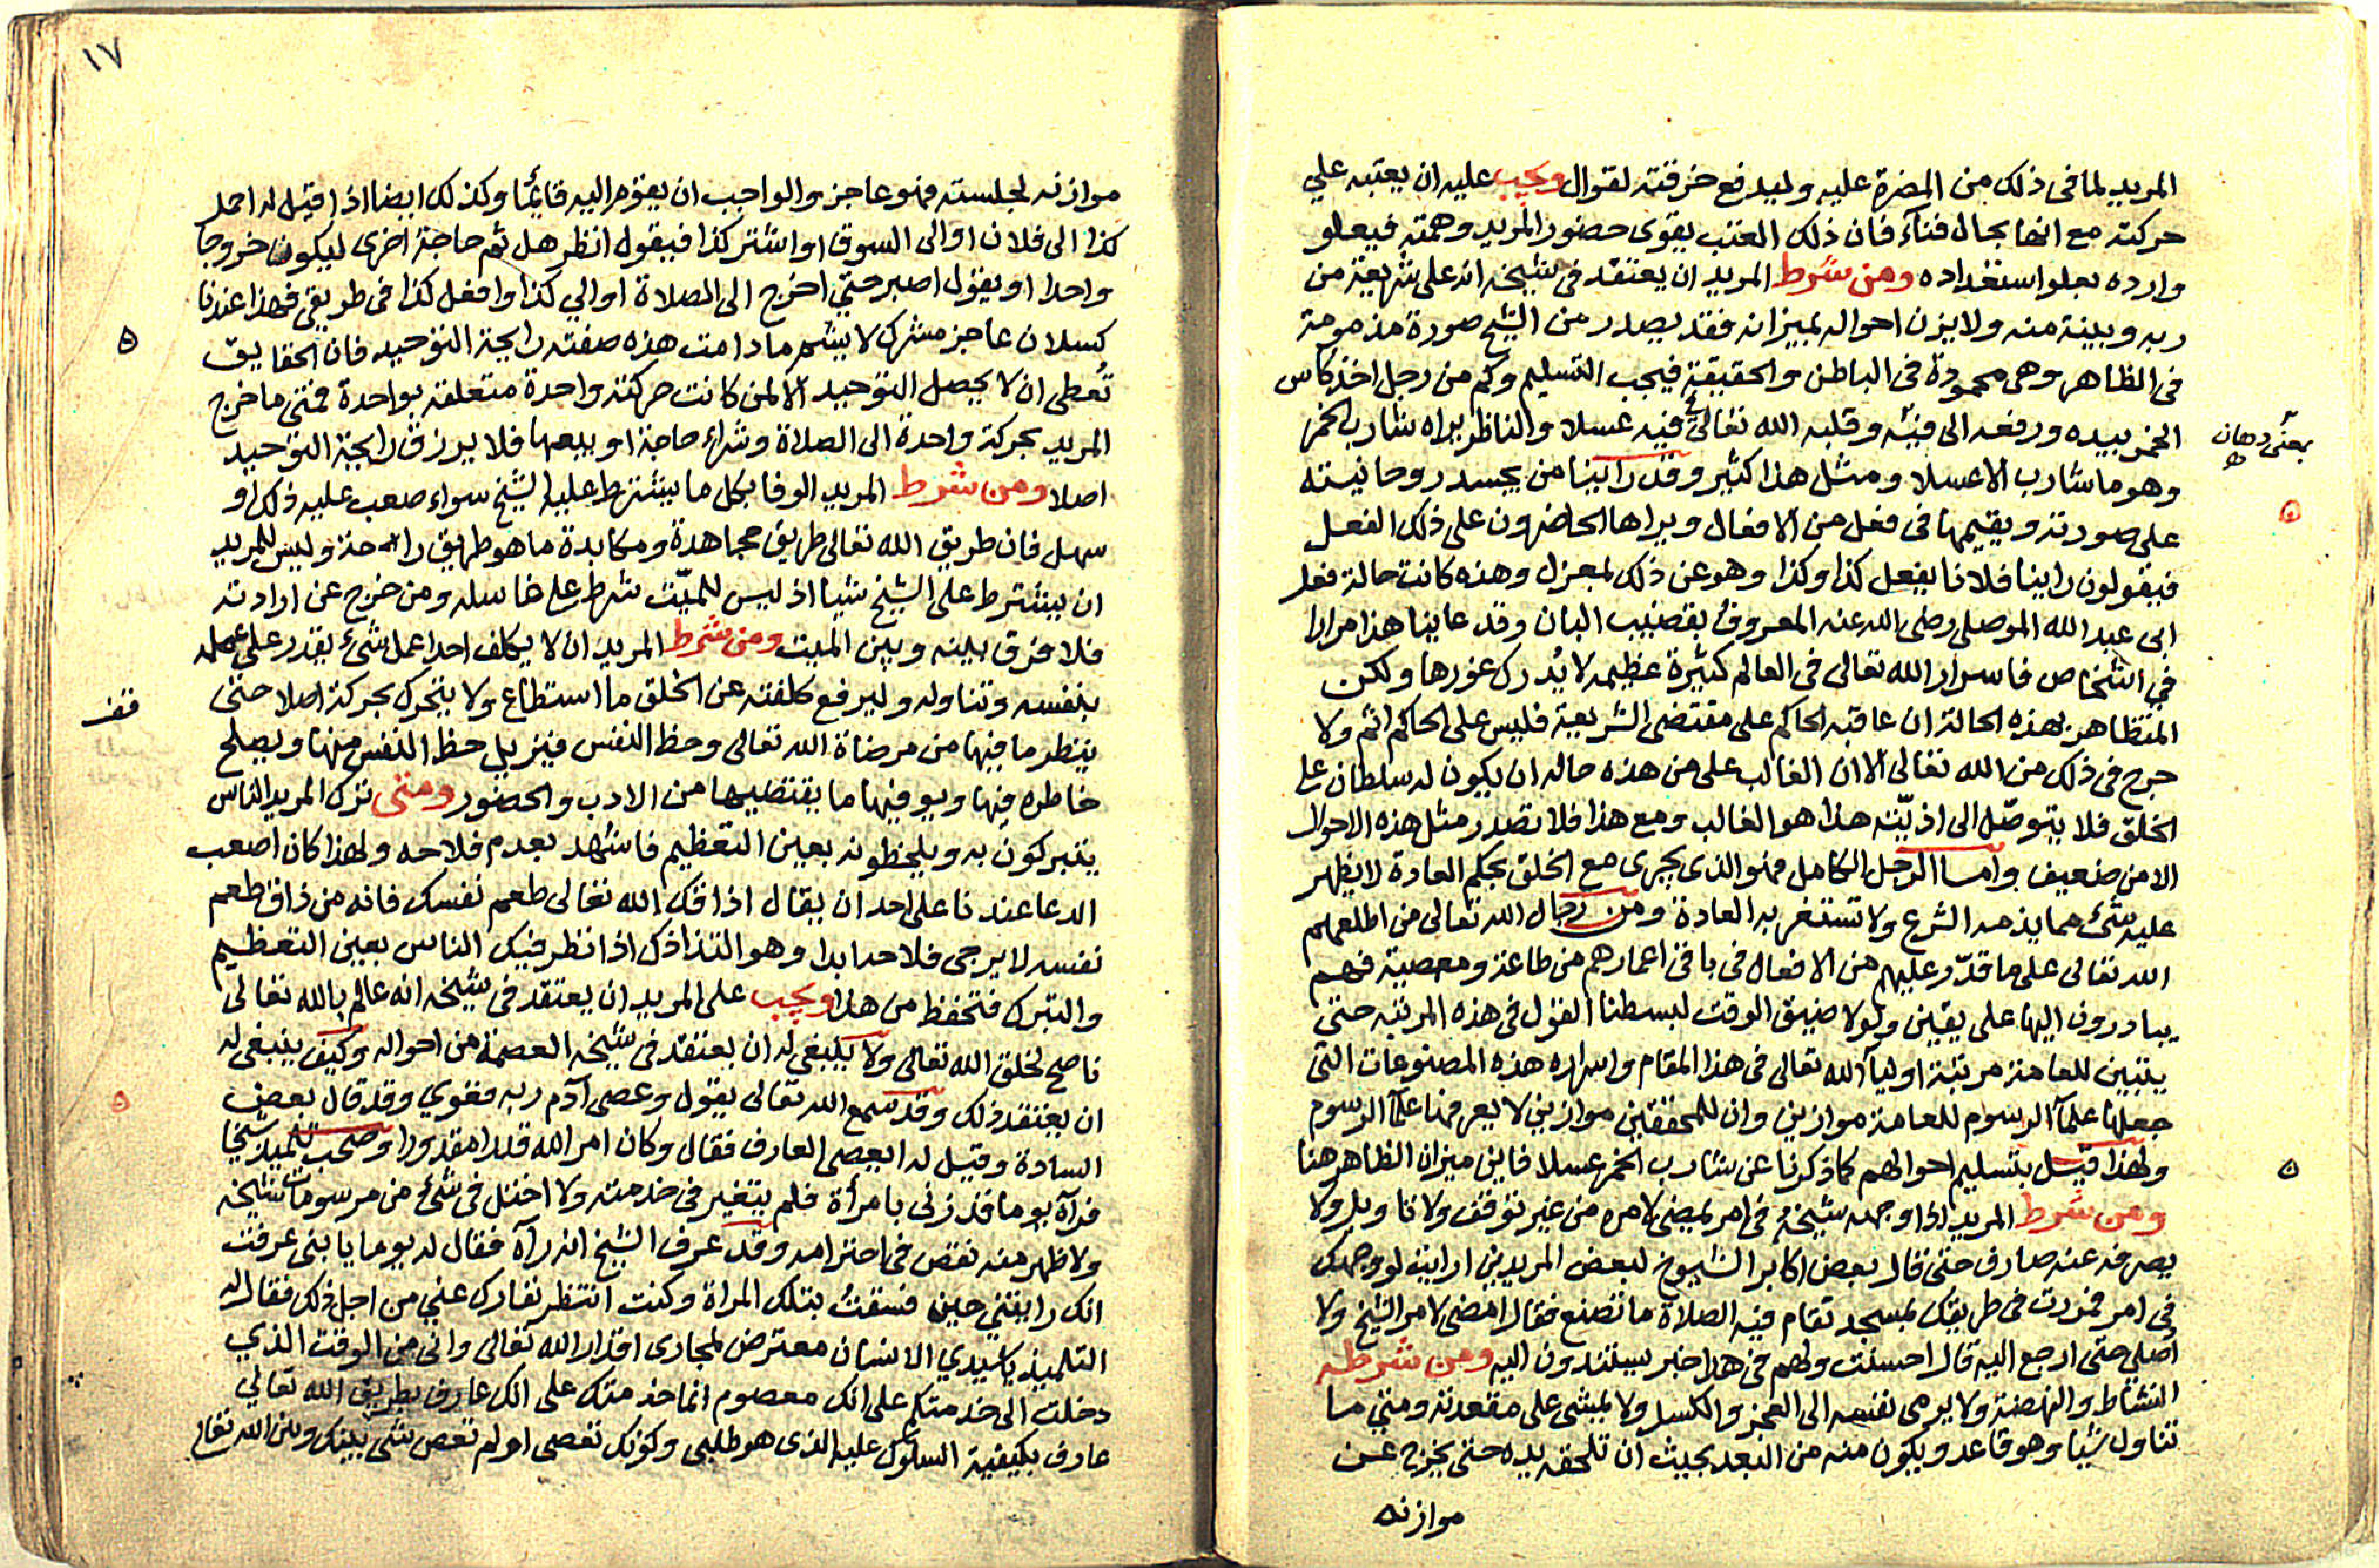 المريد لما فى ذلك من المضرة عليه وليدفع خرقته لقوال ويجب عليه ان يعتبه علي
حركته مع انها بحال فنآء فان ذلك العتب يقوى حضور المريد وهمته فيعلو
وارده بعلو استعداده ومن شرط المريد ان يعتقد فى شيخه انه على شريعة من
ربه وبينة منه ولا يزن احواله بميزانه فقد يصدر من الشيخ صورة مذمومة
فى الظاهر وهى محمودة فى الباطن والحقيقة فيجب التسليم وكم من رجل اخذ كاس
الخمر بيده ورفعه الى فيه وقلبه الله تعالى فى فيه عسلا والناظر يراه شارب الخمر
بمعنى دهان
وهو ما شارب الا عسلا ومثل هذا كثير وقد راينا من يجسد روحانيته
على صورته ويقيمها فى فعل من الافعال ويراها الحاضرون على ذلك الفعل
فيقولون راينا فلانا يفعل كذا وكذا وهو عن ذلك بمعزل وهذه كانت حالة
ابى عبد الله الموصلى رضى الله عنه المعروف بقضيب البان وقد عاينا هذا مرارا
في اشخاص فاسرار الله تعالى فى العالم كثيرة عظيمه لا يُدرك غورها ولكن
المتظاهر بهذه الحالة ان عاقبه الحاكم على مقتضى الشريعة فليس على الحاكم اثم ولا
حرج فى ذلك من الله تعالى الا ان الغالب على من هذه حاله ان يكون له سلطان على
الخلق فلا يتوصّل الى اذيّته هذا هو الغالب ومع هذا فلا تصدر مثل هذه الاحوال
الا من ضعيف واما الرجل الكامل فهو الذى يجرى مع الخلق بحكم العادة لا يظهر
عليه شئ مما يذمه الشرع ولا تستغربه العادة ومن رجال الله تعالى من اطلعهم
الله تعالى على ما قدّر عليهم من الافعال فى باقى اعمارهم من طاعة ومعصية فهم
يبادرون اليها على يقين ولولا ضيق الوقت لبسطنا القول فى هذه المرتبه حتى
يتبين للعامة مرتبة اوليآء الله تعالى فى هذا المقام واسراره هذه المصنوعات التى
جعلها علمآ الرسوم للعامة موازين وان للمحققين موازين لا يعرفها علمآ الرسوم
ولهذا قيل بتسليم احوالهم كما ذكرنا عن شارب الخمر عسلا فاين ميزان الظاهر هنا
ومن شرط المريد اذا وجهه شيخهُ فى امر يمضى لامره من غير توقف ولا تاويل ولا
يصرفه عنه صارف حتى قال بعض اكابر الشيوخ لبعض المريدين ارايت لو وجهك
فى امر فمررت فى طريقك بمسجد تقام فيه الصلاة ما تصنع فقال امضى لامر الشيخ ولا
اصلى حتى ارجع اليه قال احسنت ولهم فى هذا خبر يستندون اليه ومن شرطه
النشاط والنهضة ولا يرمى نفسه الى العجز والكسل ولا يمشى على مقعدته ومتي ما
تناول شيا وهو قاعد ويكون منه من البعد بحيث ان تلحقه يده حتى يخرج عن
موازنه
١٧
موازنه لجلسته فهو عاجز والواجب ان يقوم اليه قائما وكذلك ايضا اذا قيل له احمل
كذا الى فلان او الى السوق او اشتر كذا فيقول انظر هل ثم حاجة اخرى ليكون خروجا
واحدا او يقول اصبر حتي اخرج الى الصلاة او الي كذا وافعل كذا فى طريقى فهذا عندنا
كسلان عاجز مشرك لا يشم ما دامت هذه صفته رايحة التوحيد فان الحقايق
تُعطى ان لا يحصل التوحيد الا لمن كانت حركته واحدة متعلقه بواحدة فمتى ما خرج
المريد بحركة واحدة الى الصلاة وشراء حاجة او بيعها فلا يرزق رايحة التوحيد
اصلا ومن شرط المريد الوفا بكل ما يشترط عليه الشيخ سواء صعب عليه ذلك او
سهل فان طريق الله تعالى طريق مجاهدة ومكابدة ما هو طريق راحة وليس للمريد
ان يشترط على الشيخ شيا اذ ليس للميّت شرط على غاسله ومن خرج عن ارادته
فلا فرق بينه وبين الميت ومن شرط المريد ان لا يكلف احدا عمل شئ يقدر على عمله
بنفسه وتناوله وليرفع كلفته عن الخلق ما استطاع ولا يتحرك بحركة اصلا حتى
قف
ينظر ما فيها من مرضاة الله تعالى وحظ النفس فيزيل حظ النفس منها ويصلح
خاطره فيها ويوفيها ما يقتضيها من الادب والحضور ومتى ترك المريد الناس
يتبركون به ويلحظونه بعين التعظيم فاشهد بعدم فلاحه ولهذا كان اصعب
الدعا عندنا على احد ان يقال اذاقك الله تعالى طعم نفسك فانه من ذاق طعم
نفسه لا يرجى فلاحه ابدا وهو التذاذك اذا نظر فيك الناس بعين التعظيم
والتبرك فتحفظ من هذا ويجب على المريد ان يعتقد فى شيخه انه عالم بالله تعالى
ناصح لخلق الله تعالى ولا ينبغى له ان يعتقد فى شيخه العصمة من احواله وكيف ينبغى له
ان يعتقد ذلك وقد سمع الله تعالى يقول وعصى آدم ربه فغوي وقد قال بعض
السادة وقيل له ايعصى العارف فقال وكان امر الله قدرا مقدورا وصحب تلميذ شيخا
فرآه يوما قد زنى بامرأة فلم يتغير فى خدمته ولا اختل فى شئ من مرسومات شيخه
ولا ظهر منه نقص فى احترامه وقد عرف الشيخ انه رآه فقال له يوما يا بنى عرفت
انك رايتني حين فسقتُ بتلك المراة وكنت انتظر نفارك عني من اجل ذلك فقال له
التلميذ يا سيدي الانسان معترض لمجارى اقدار الله تعالى وانى من الوقت الذي
دخلت الى خدمتك على انك معصوم انما خدمتك على انك عارف بطريق الله تعالي
عارف بكيفية السلوك عليه الذى هو طلبى وكونك تعصى او لم تعص شى بينك وبين الله تعالى